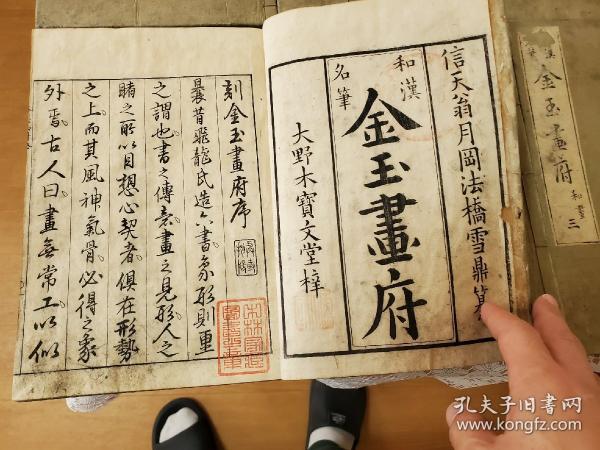 信天翁月岡法橋雪鼎纂
和漢
名筆
金玉畫府
大野木寶文堂梓
刻金玉畫府序
曩昔飛龍氏造六書象形則畫
之謂也書之傳意畫之見形人之
睹之所以目想心契者俱在形勢
之上而其風神氣骨必得之象
外焉古人曰畫無常工以似
金玉畫府
和畫
三
孔夫子旧书网
www.kongfz.com